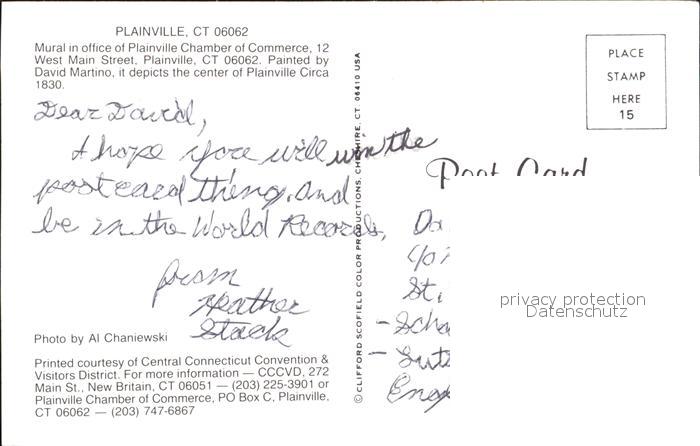 PLAINVILLE, CT 06062
Mural in office of Plainville Chamber of Commerce, 12
West Main Street, Plainville, CT 06062. Painted by
David Martino, it depicts the center of Plainville Circa
1830.
Dear David,
I hope you will win the
postcard thing. And
be in the World Records,
from
Heather
Stack
Photo by Al Chaniewski
Printed courtesy of Central Connecticut Convention &
Visitors District. For more information — CCCVD, 272
Main St., New Britain, CT 06051 — (203) 225-3901 or
Plainville Chamber of Commerce, PO Box C, Plainville,
CT 06062 — (203) 747-6867
© CLIFFORD SCOFIELD COLOR PRODUCTIONS, CHESHIRE, CT 06410 USA
PLACE
STAMP
HERE
15
Post Card
privacy protection
Datenschutz